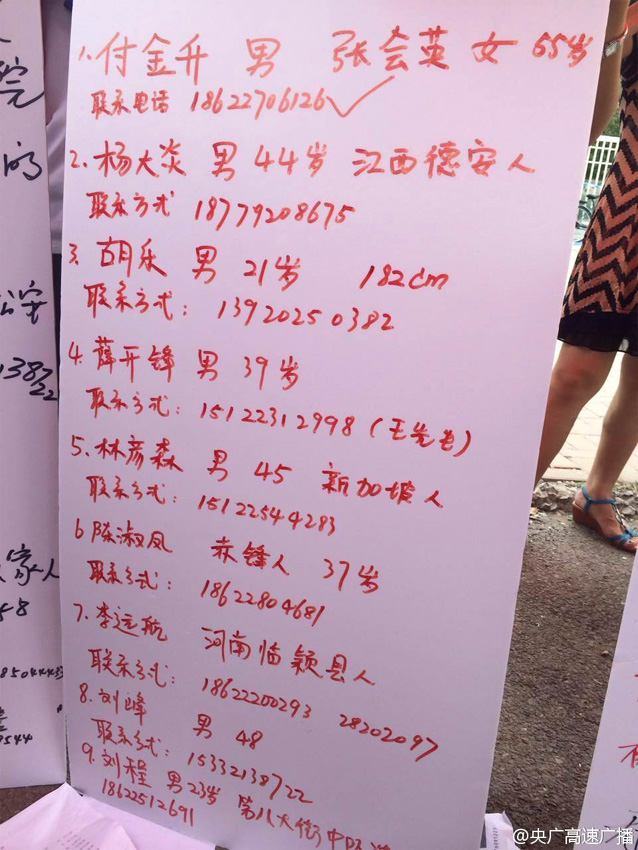 1. 付金升 男 张会英 女 65岁
联系电话 18622706126
2. 杨大炎 男 44岁 江西德安人
联系方式 18779208675
3. 胡乐 男 21岁 182cm
联系方式: 13920250382
4. 薛开锋 男 39岁
联系方式: 15122312998 (王先生)
5. 林彦森 男 45 新加坡人
联系方式: 15122544283
6 陈淑凤 赤锋人 37岁
联系方式: 18622804681
7. 李远航 河南临颍县人
联系方式: 18622200293 28202097
8. 刘峰 男 48
联系方式: 15332138722
9. 刘程 男 23岁 第八大街中
18622512691
的
公安
家人
@央广高速广播